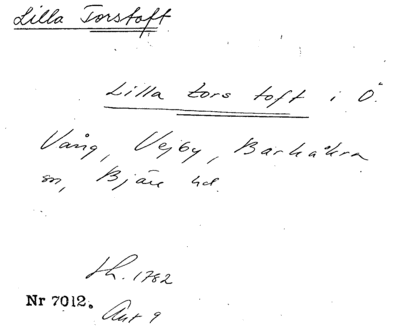 Lilla Torstoft
Lilla tors toft i Ö.
Vång, Vejby, Barkåkra
sn, Bjäre hd.
Sk. 1782
Nr 7012.
Akt 9